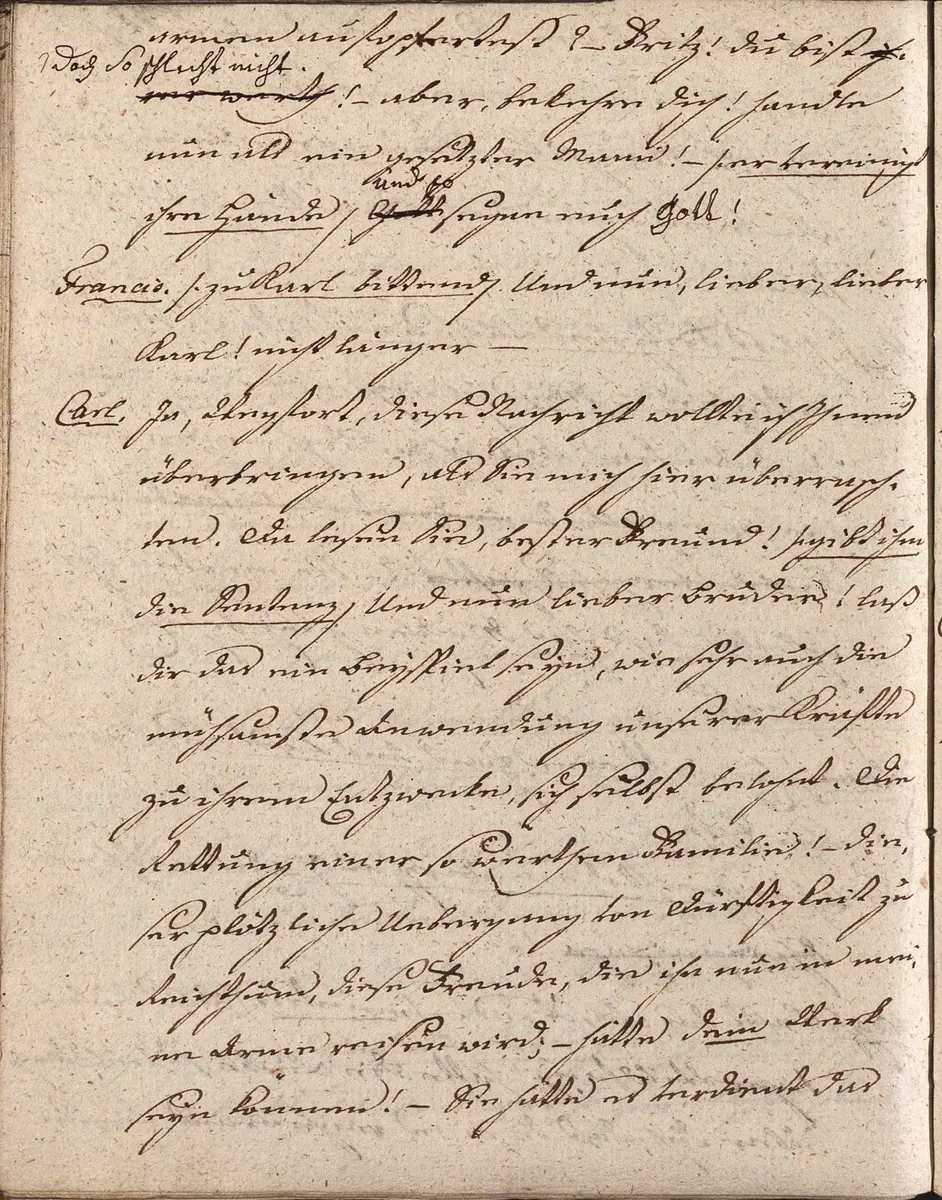 armen aufopfertest? – Fritz! du bist ih-
doch so schlecht nicht.
rer werth! – aber, bekehre dich! handle
nun als ein gesetzter Mann! – /: er vereinigt
ihre Hände / Gott und so segne euch Gott!
Francis. /: zu Karl bittend / Und nun, lieber, lieber
Karl! nicht länger —
Carl. Ja, diese Nachricht wollte ich Ihnen
überbringen, als Sie mich hier überrasch-
ten. Da lesen Sie, bester Freund! /: gibt ihm
die Sentenz / Und nun lieber Bruder! laß
dir das ein Beyspiel seyn, wie sehr auch die
mühsamste Anwendung unserer Kräfte
zu ihrem Entzwecke, sich selbst belohnt. Die
Rettung einer so werthen Familie! – die-
ser plötzliche Uebergang von Dürftigkeit zu
Reichthum, diese Freude, die ihn nun in mei-
ne Arme reisen wird; – hätte dein Werk
seyn können! – Sie hätte es verdient das